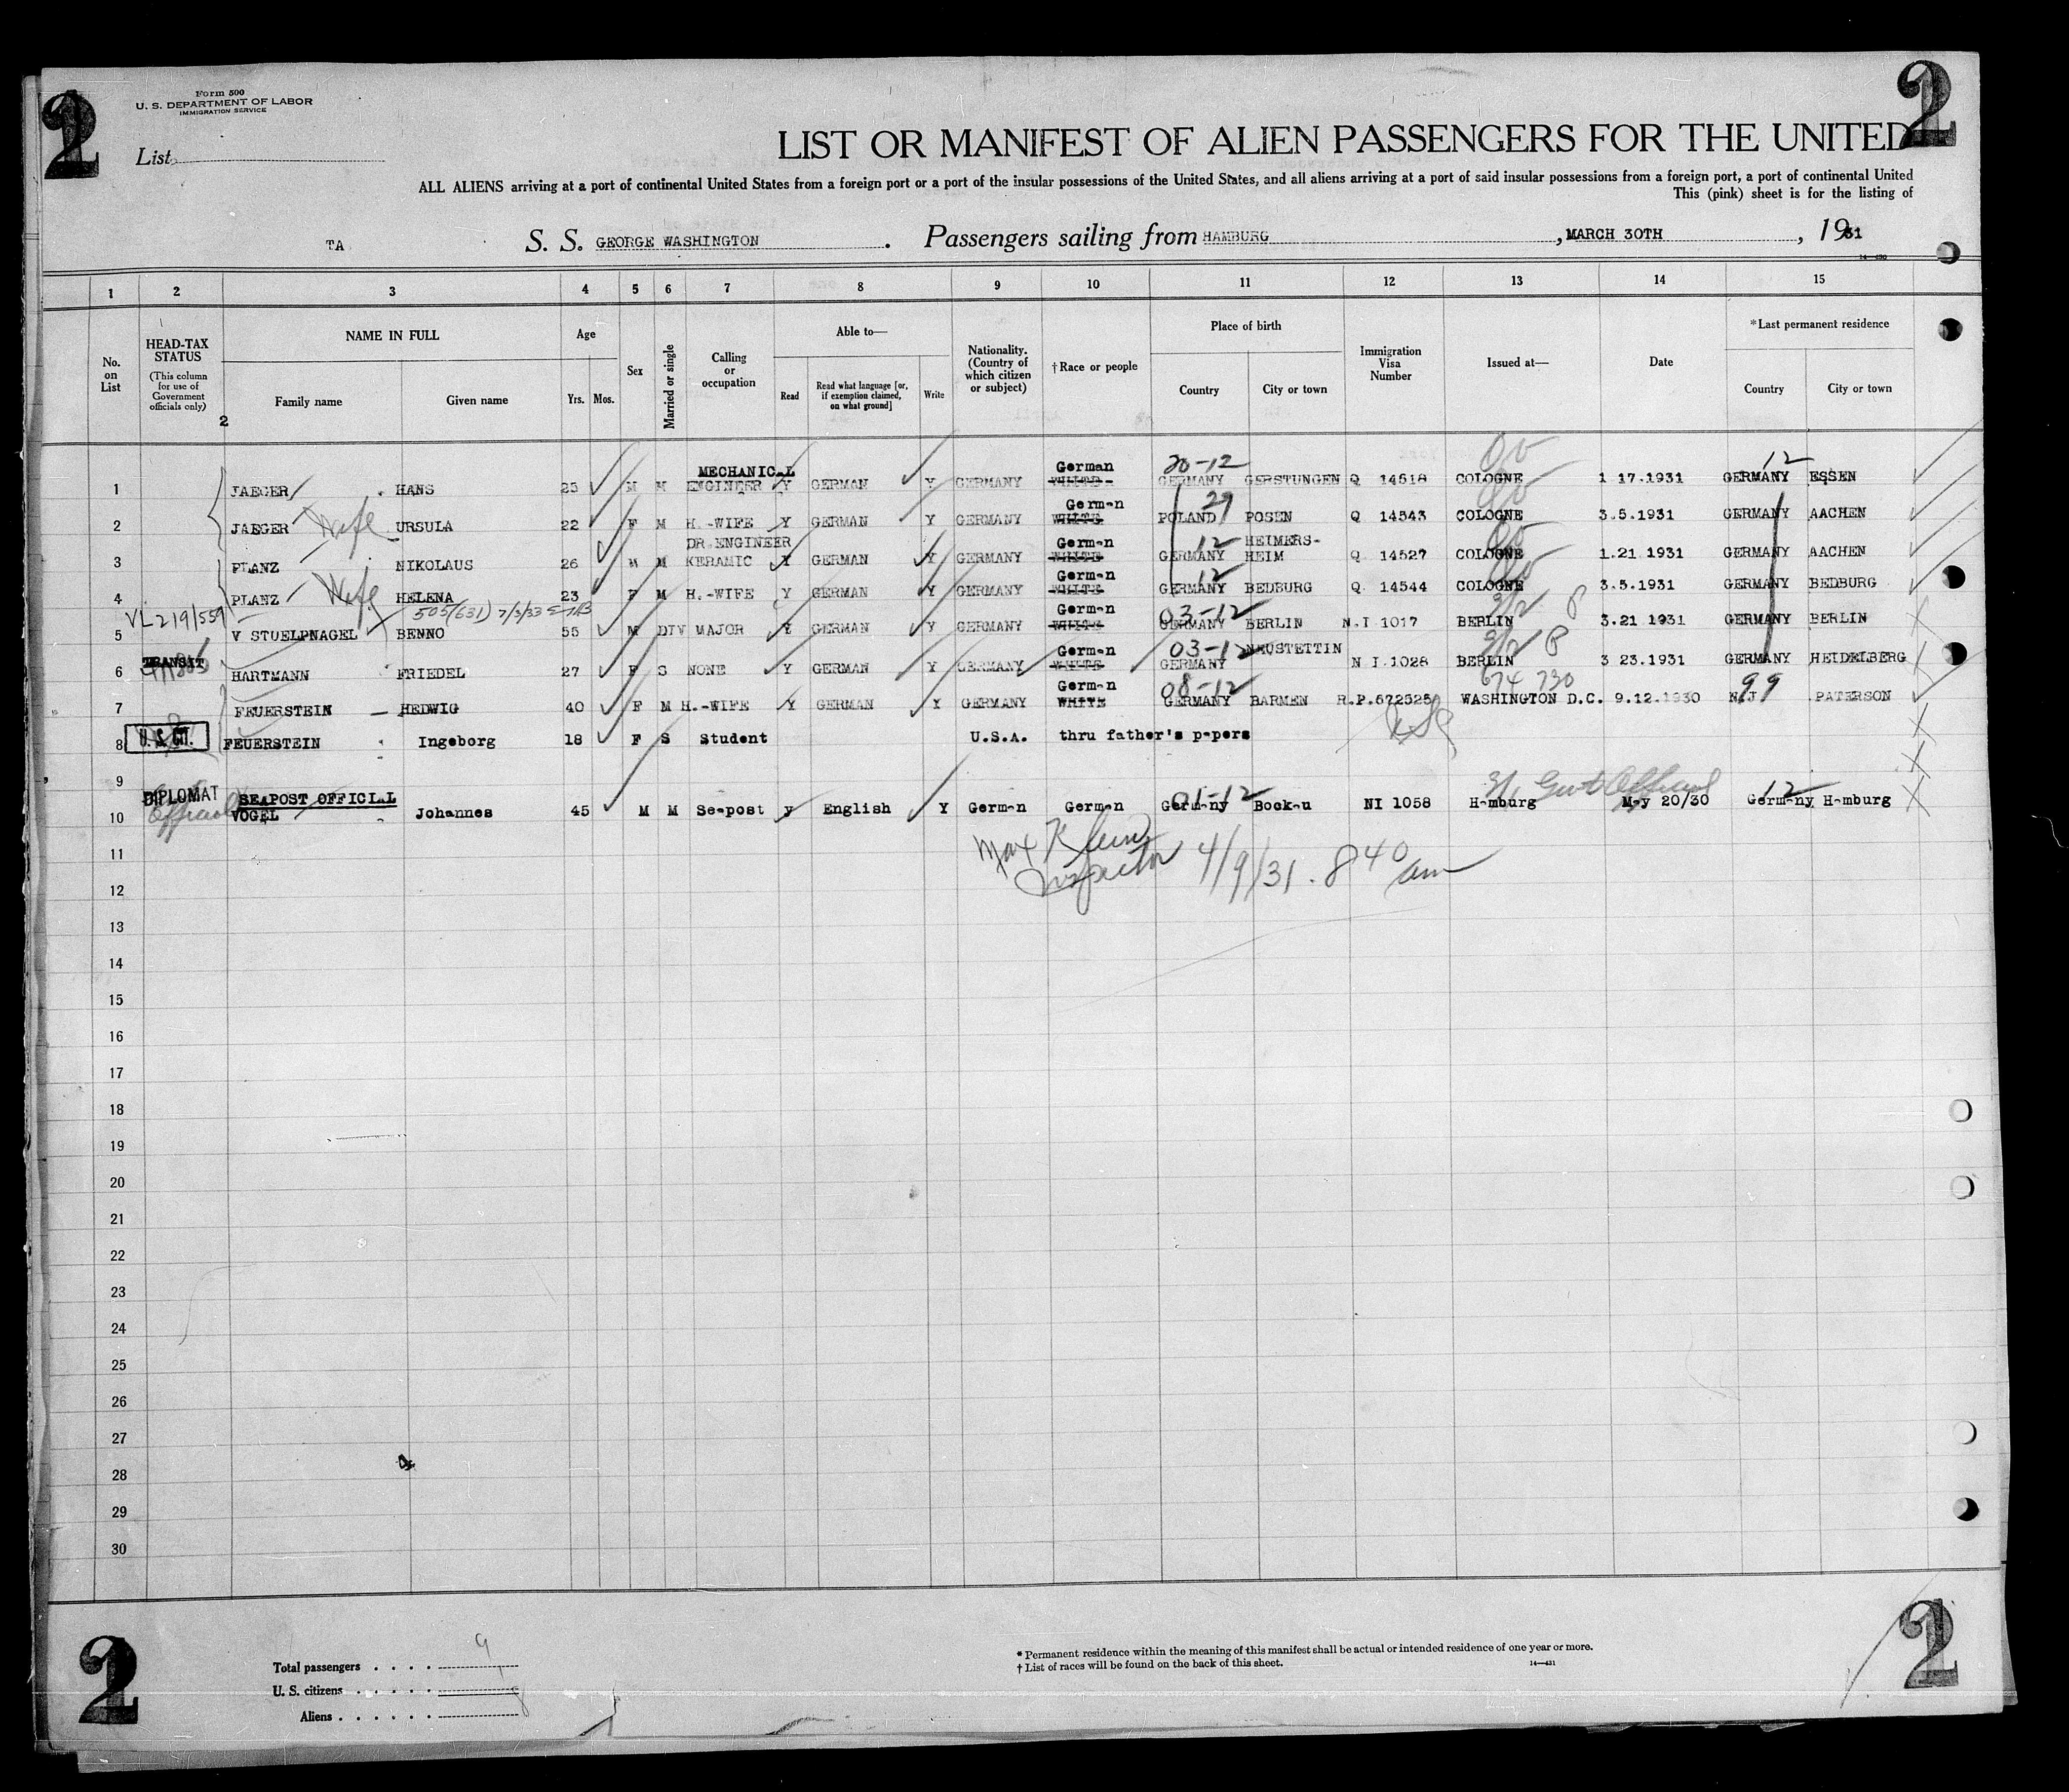 2
2
Form 500
U. S. DEPARTMENT OF LABOR
IMMIGRATION SERVICE
List
LIST OR MANIFEST OF ALIEN PASSENGERS FOR THE UNITED
ALL ALIENS arriving at a port of continental United States from a foreign port or a port of the insular possessions of the United States, and all aliens arriving at a port of said insular possessions from a foreign port, a port of continental United
This (pink) sheet is for the listing of
TA S. S. GEORGE WASHINGTON . Passengers sailing from HAMBURG , MARCH 30TH , 1931
14—430
1 2 3 4 5 6 7 8 9 10 11 12 13 14 15
No. on List
HEAD-TAX STATUS
(This column for use of Government officials only)
NAME IN FULL
Family name Given name
Age
Yrs. Mos.
Sex
Married or single
Calling or occupation
Able to—
Read
Read what language [or, if exemption claimed, on what ground]
Write
Nationality. (Country of which citizen or subject)
† Race or people
Place of birth
Country City or town
Immigration Visa Number
Issued at—
Date
* Last permanent residence
Country City or town
2
MECHANICAL German 20-12 12
1 JAEGER HANS 25 M M ENGINEER Y GERMAN Y GERMANY WHITE GERMANY GERSTUNGEN Q 14518 COLOGNE 1 17.1931 GERMANY ESSEN
German 29
2 JAEGER Wife URSULA 22 F M H.-WIFE Y GERMAN Y GERMANY WHITE POLAND POSEN Q 14543 COLOGNE 3.5.1931 GERMANY AACHEN
DR.ENGINEER German 12 HEIMERS-
3 PLANZ NIKOLAUS 26 M M KERAMIC Y GERMAN Y GERMANY WHITE GERMANY HEIM Q 14527 COLOGNE 1.21 1931 GERMANY AACHEN
German 12
4 PLANZ Wife HELENA 23 F M H.-WIFE Y GERMAN Y GERMANY WHITE GERMANY BEDBURG Q 14544 COLOGNE 3.5.1931 GERMANY BEDBURG
VL219/559 505(631) 7/3/33 German 03-12 3/2
5 V STUELPNAGEL BENNO 55 M DIV MAJOR Y GERMAN Y GERMANY WHITE GERMANY BERLIN N.I 1017 BERLIN 3.21 1931 GERMANY BERLIN
TRANSIT German 03-12 NEUSTETTIN 3/2
6 HARTMANN FRIEDEL 27 F S NONE Y GERMAN Y GERMANY WHITE GERMANY N I.1028 BERLIN 3 23.1931 GERMANY HEIDELBERG
German 08-12 674 730 99
7 FEUERSTEIN HEDWIG 40 F M H.-WIFE Y GERMAN Y GERMANY WHITE GERMANY BARMEN R.P.672525 WASHINGTON D.C. 9.12.1930 N.J. PATERSON
8 U. S. CIT. FEUERSTEIN Ingeborg 18 F S Student U.S.A. thru father's papers
9
DIPLOMAT SEAPOST OFFICIAL 01-12 3/1 Govt Official 12
10 Official VOGEL Johannes 45 M M Seapost y English Y German German Germany Bockau NI 1058 Hamburg May 20/30 Germany Hamburg
11 Max Klein
12 Inspector 4/9/31. 8 40 am
13
14
15
16
17
18
19
20
21
22
23
24
25
26
27
28
29
30
4
Total passengers . . . . 9
U. S. citizens . . . . . 1
Aliens . . . . . . 8
* Permanent residence within the meaning of this manifest shall be actual or intended residence of one year or more.
† List of races will be found on the back of this sheet.
14—431
2
2